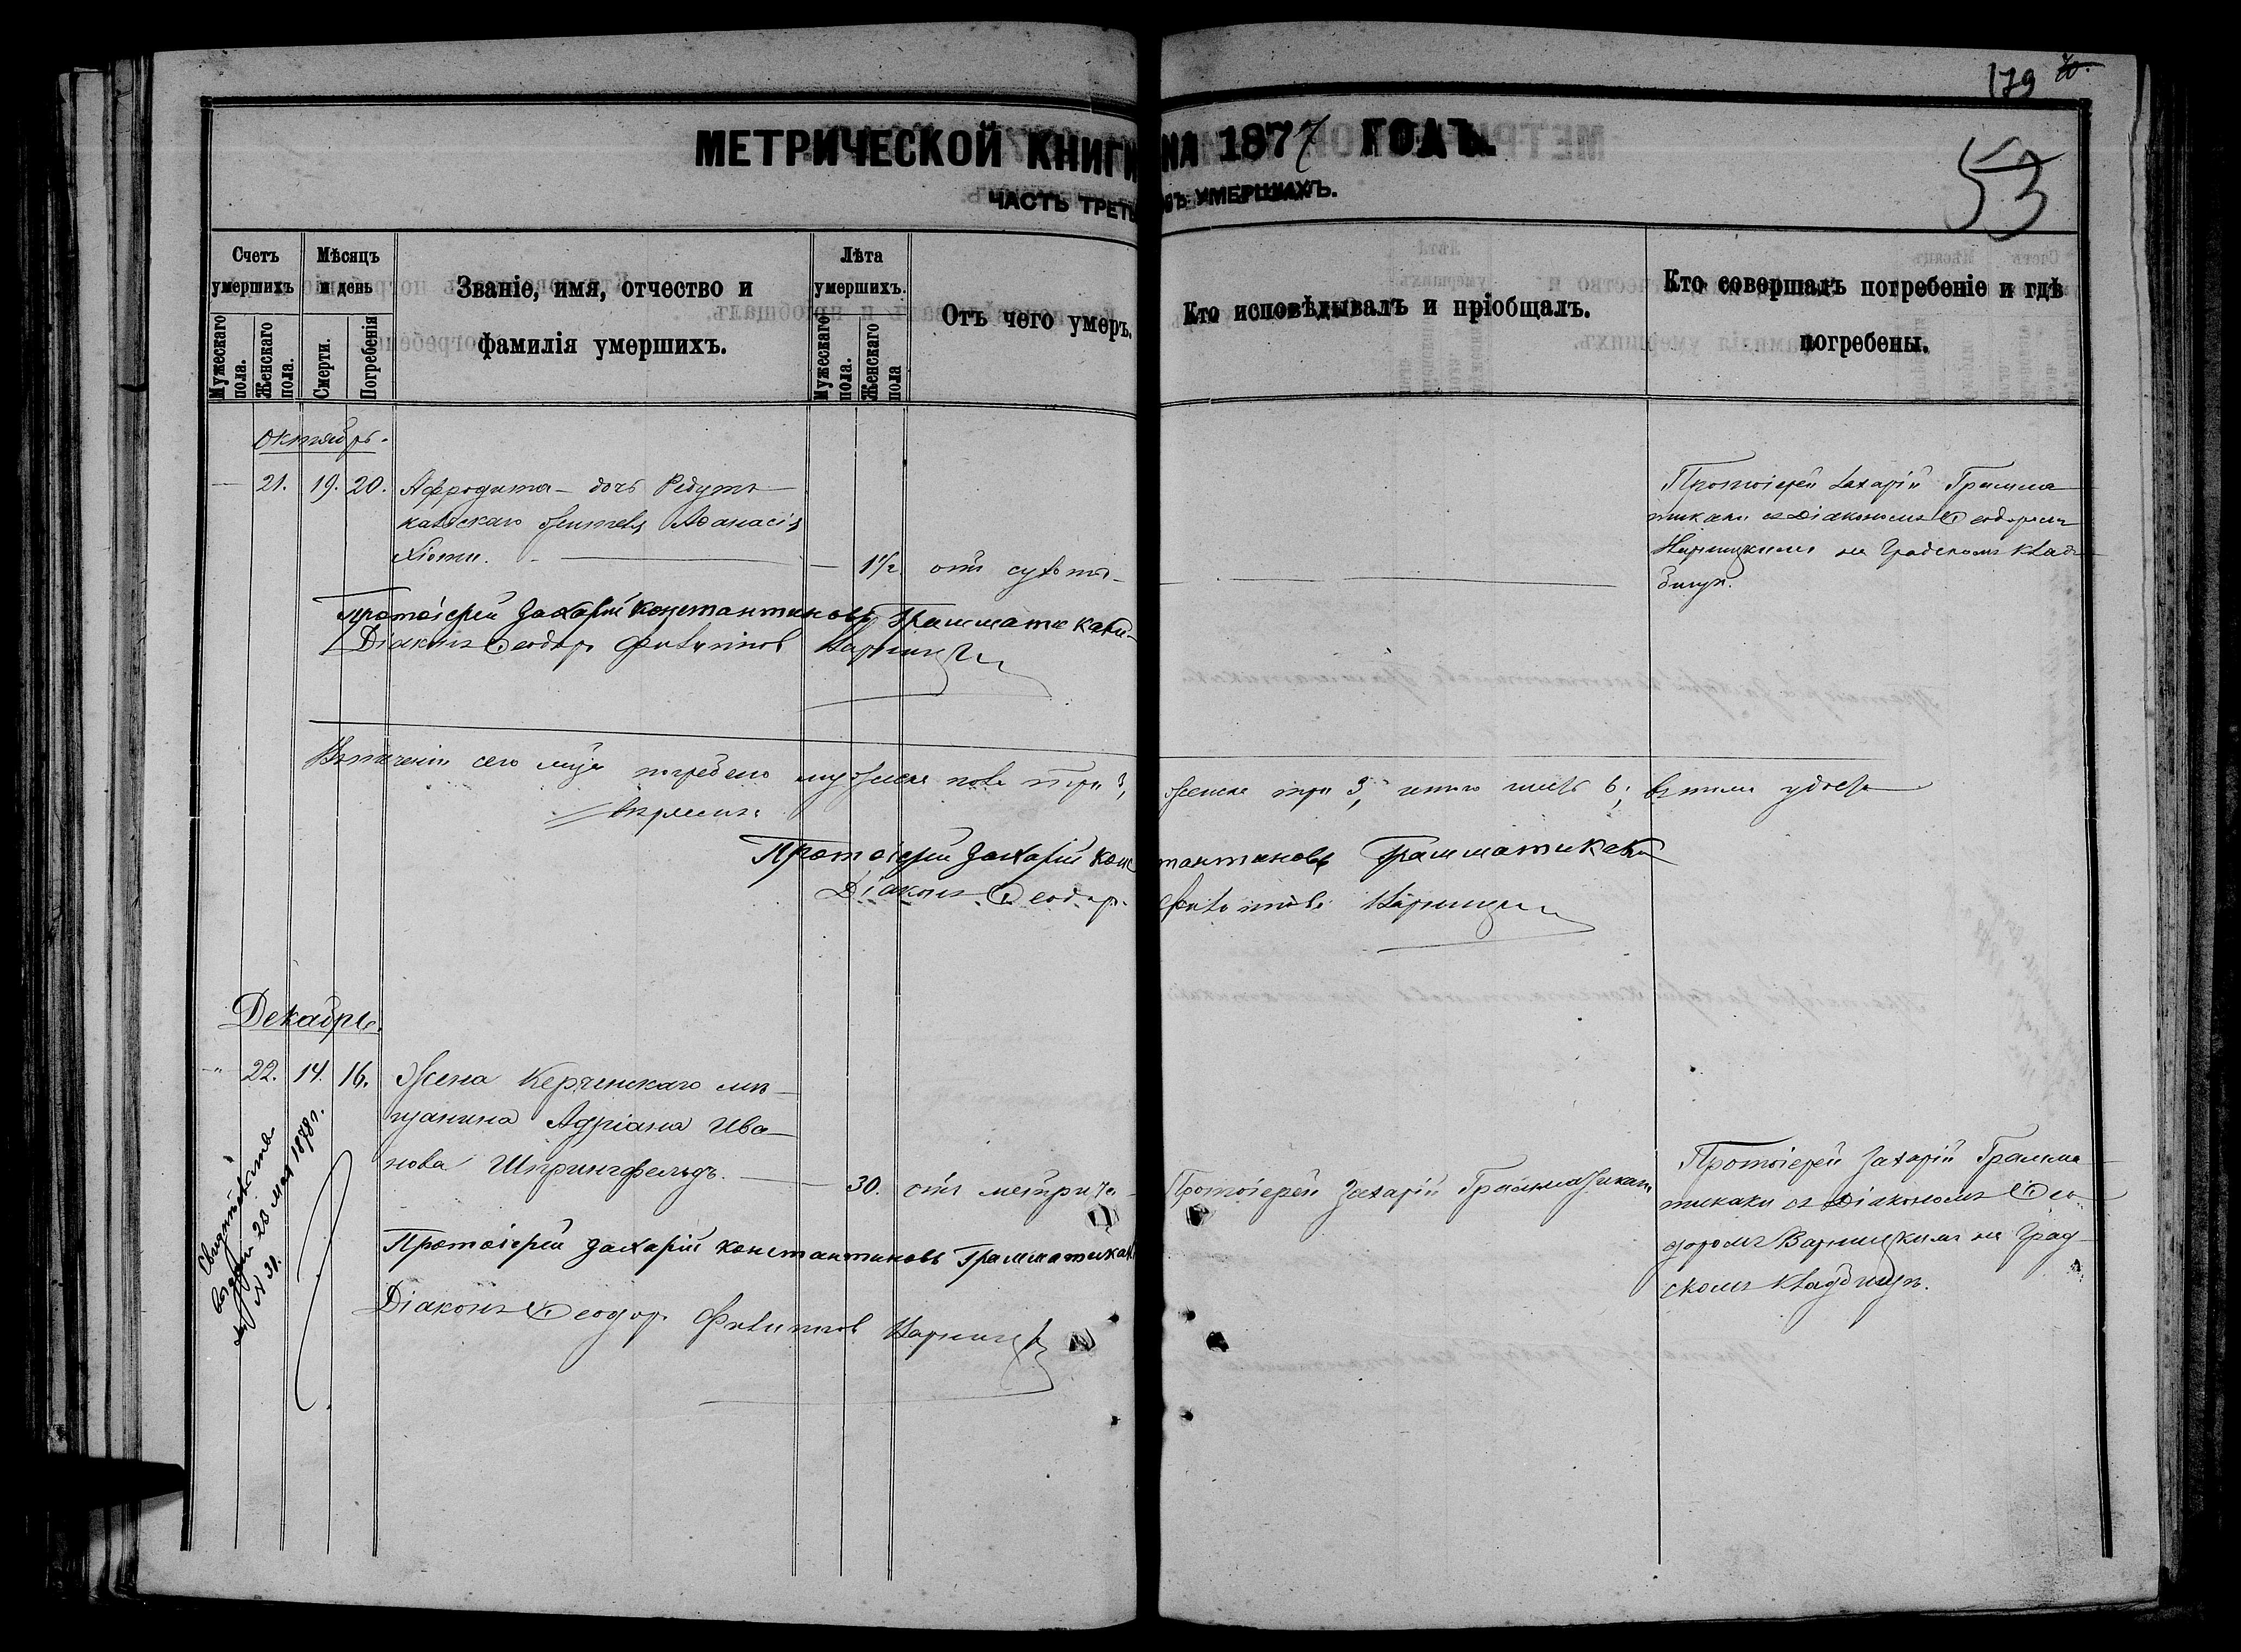 179
МЕТРИЧЕСКОЙ КНИГИ НА 1877 ГОДЪ.
53
ЧАСТЬ ТРЕТЬ УМЕРШИХЪ.
Счетъ умершихъ
Мужескаго пола.
Женскаго пола.
Мѣсяцъ и день
Смерти.
Погребенія
Званіе, имя, отчество и
фамилія умершихъ.
Лѣта умершихъ.
Мужескаго пола.
Женскаго пола
Отъ чего умеръ.
Кто исповѣдывалъ и пріобщалъ.
Кто совершалъ погребеніе и гдѣ
погребены.
Октябрь.
— 21. 19. 20. Афродита — дочь Редутъ
калескаго жителя Аѳанасія
Хіоти. — — 1½ отъ сухотъ
Протоіерей Захарій Грамма
тикаки съ Діакономъ Ѳеодоромъ
Варницкимъ на Градскомъ клад
бищѣ.
Протоіерей Захарій Константиновъ Грамматикаки
Діаконъ Ѳеодоръ Филипповъ Варницкій
Въ теченіи сего погребено мужеска пола три 3, женска три 3, итого шесть 6; въ томъ удосто
вѣряемъ:
Протоіерей Захарій Константиновъ Грамматикаки
Діаконъ Ѳеодоръ Филипповъ Варницкій
Декабрь.
" 22. 14. 16. Жена Керченскаго мѣ
щанина Адріана Ива
нова Шпрингфельдъ. — — 30. отъ
Протоіерей Захарій Грамматикаки
Протоіерей Захарій Грамма
тикаки съ Діакономъ Ѳео
доромъ Варницкимъ на Град
скомъ кладбищѣ.
Свидѣтельство
выдано 23 мая 1878 г.
N 31.
Протоіерей Захарій Константиновъ Грамматикаки
Діаконъ Ѳеодоръ Филипповъ Варницкій